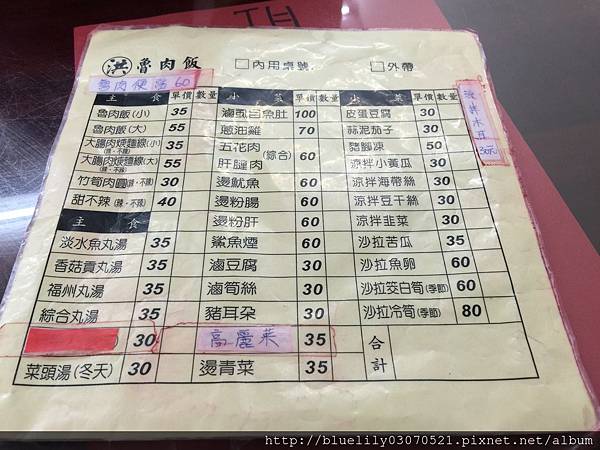 洪 魯肉飯 □內用桌號: □外帶
魯肉便當 60
主食 單價 數量 小菜 單價 數量 小菜 單價 數量
魯肉飯(小) 35 滷虱目魚肚 100 皮蛋豆腐 30
魯肉飯(大) 55 蔥油雞 70 蒜泥茄子 30
大腸肉焿麵線(小) 35 五花肉 (綜合) 60 豬腳凍 50
大腸肉焿麵線(大) 55 肝腱肉 涼拌小黃瓜 30
竹筍肉圓 30 燙魷魚 60 涼拌海帶絲 30
甜不辣 40 燙粉腸 60 涼拌豆干絲 30
主食 燙粉肝 60 涼拌韭菜 30
淡水魚丸湯 35 鯊魚煙 60 沙拉苦瓜 35
香菇貢丸湯 35 滷豆腐 30 沙拉魚卵 60
福州丸湯 35 滷筍絲 30 沙拉筊白筍(季節) 60
綜合丸湯 35 豬耳朵 30 沙拉冷筍(季節) 80
30 高麗菜 35 合計
菜頭湯(冬天) 30 燙青菜 35
木耳
30元
http://bluelily03070521.pixnet.net/album